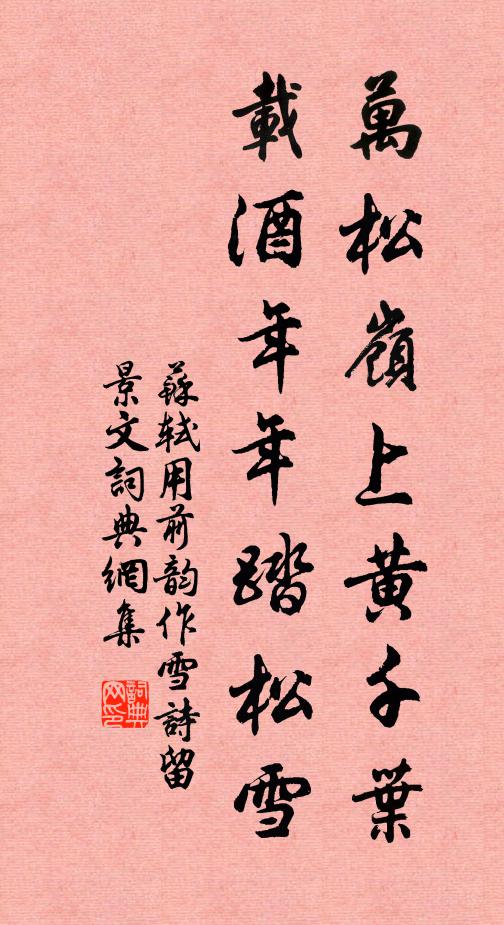 萬松嶺上黃千葉
載酒年年踏松雪
蘇軾用前韵作雪詩留
景文詞典網集
詞典
网印